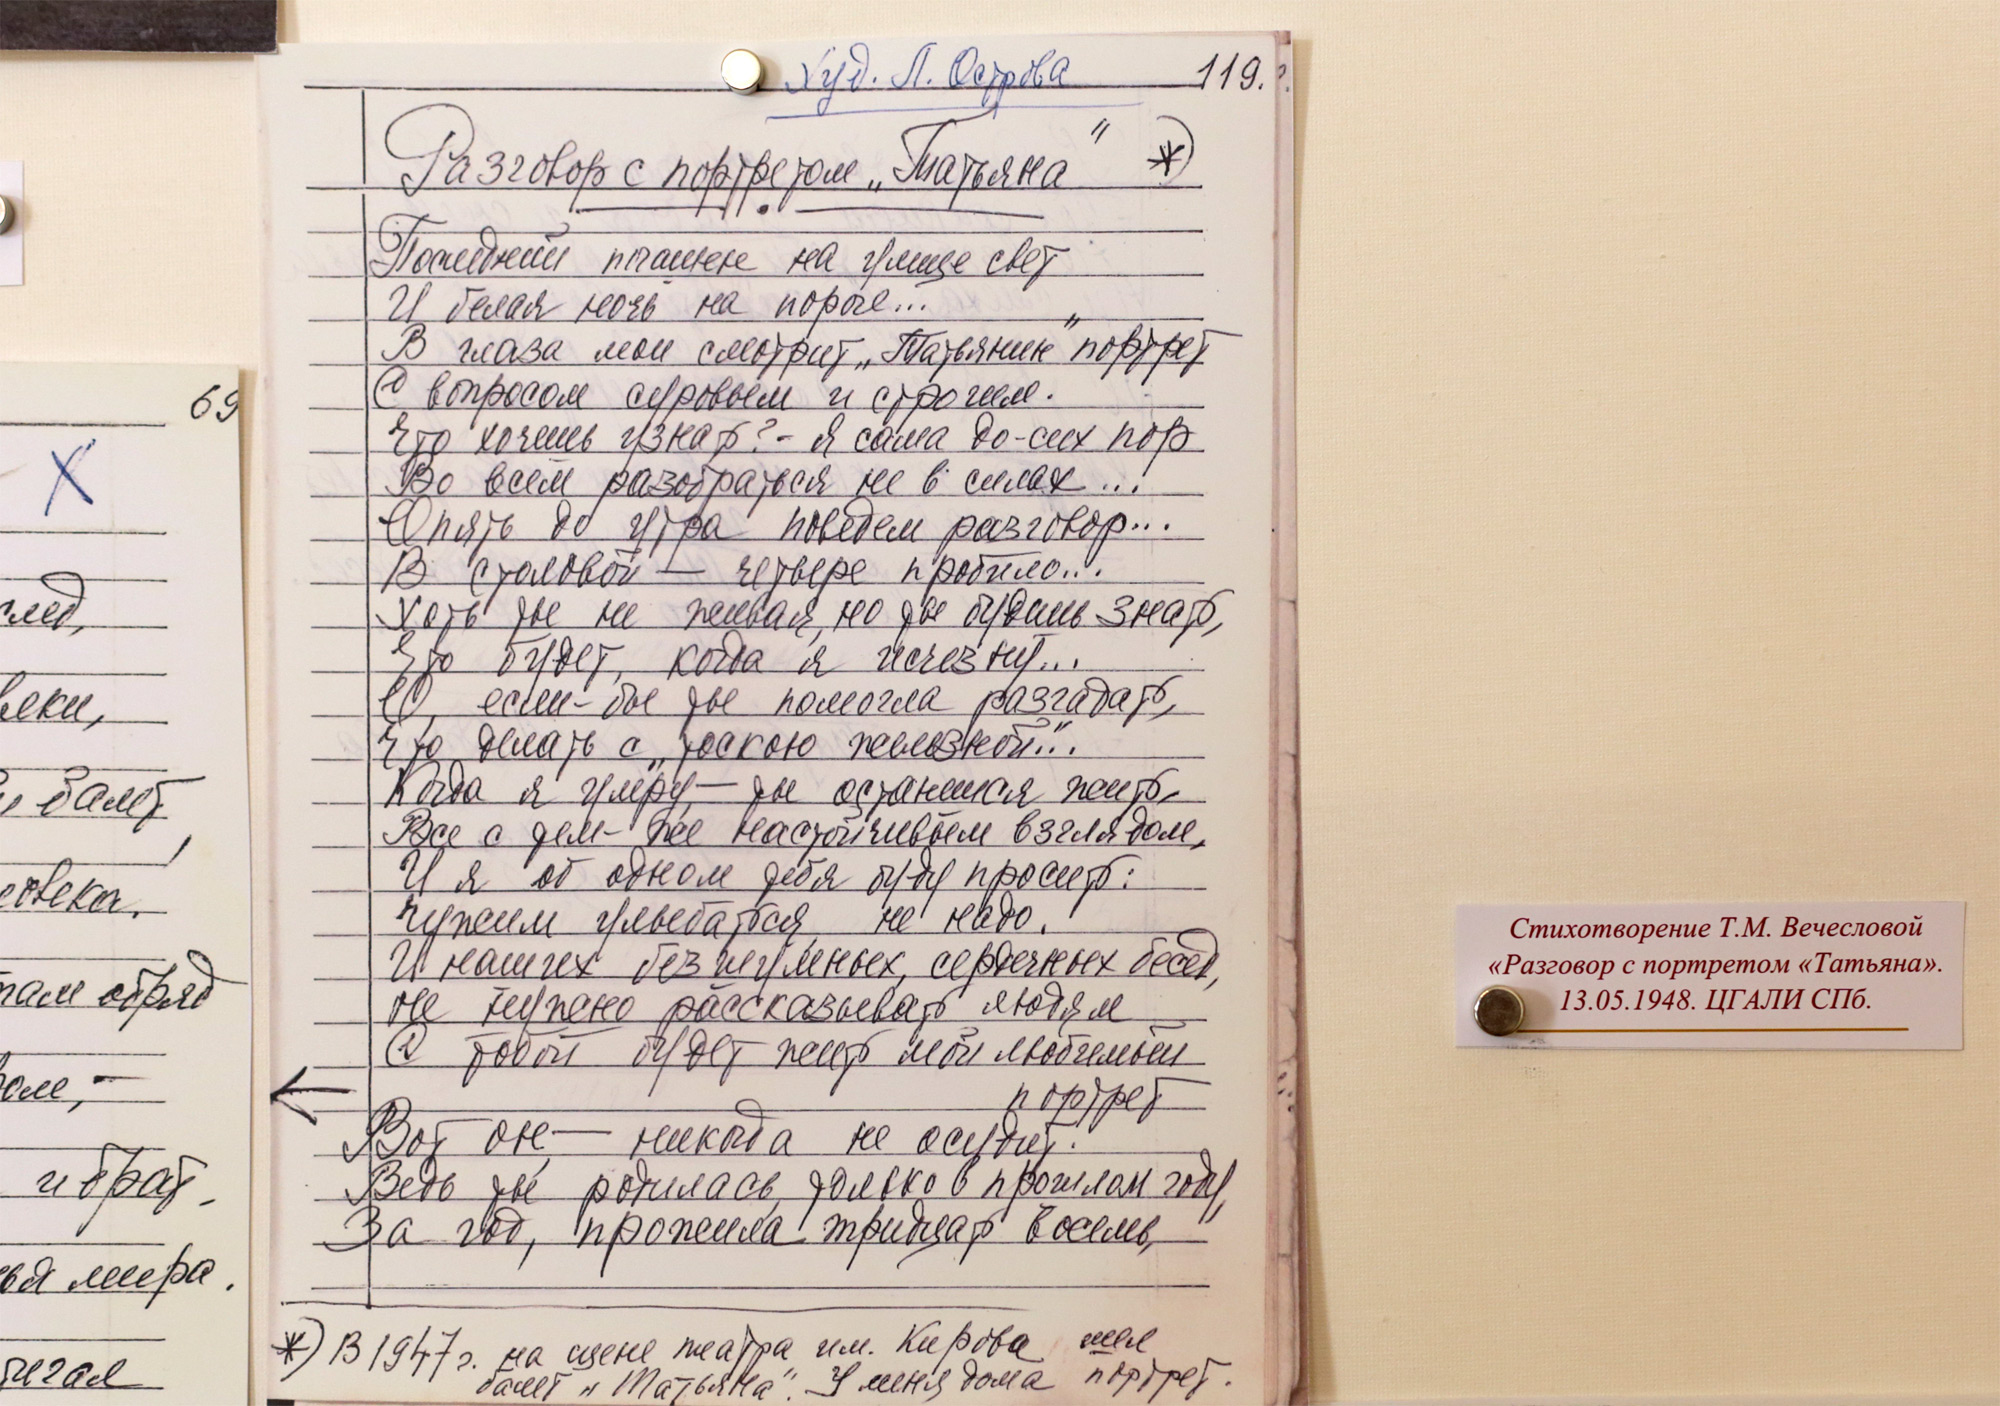 Худ. Л. Острова
119.
Разговор с портретом „Татьяна" *)
Последний пламень на улице свет
И белая ночь на пороге...
В глаза мои смотрит „Татьянин" портрет
С вопросом суровым и строгим.
Что хочешь узнать? - Я сама до-сих пор
Во всём разобраться не в силах...
Опять до утра поведем разговор...
В столовой — четыре пробило...
Хоть ты не живая, но ты будешь знать,
Что будет, когда я исчезну...
О, если-бы ты помогла разгадать,
Что делать с „тоскою железной"...
Когда я умру, — ты останешься жить,
Все с тем-же настойчивым взглядом,
И я об одном тебя буду просить:
Чужим улыбаться не надо.
И наших безшумных, сердечных бесед,
Не нужно рассказывать людям
С тобой будет жить мой любимый
портрет
Вот он — никогда не осудит.
Ведь ты родилась только в прошлом году,
За год, прожила тридцать восемь,
*) В 1947 г. на сцене театра им. Кирова шел
балет „Татьяна". У меня дома портрет.
69
X
след,
веки,
балет,
человека.
там обряд
и брат.
мира.
Стихотворение Т.М. Вечесловой
«Разговор с портретом «Татьяна».
13.05.1948. ЦГАЛИ СПб.